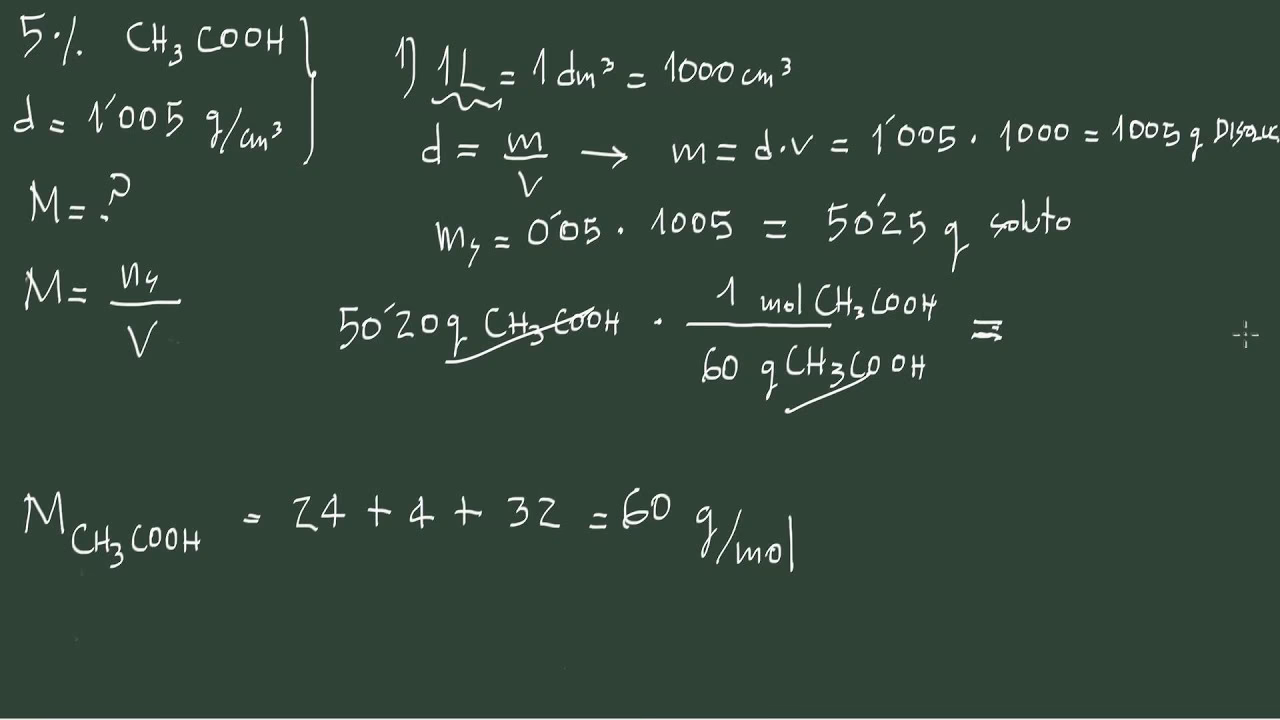 5·/. CH₃COOH
d = 1'005 g/cm³
M = ?
M = n₅/V
1) 1L = 1dm³ = 1000 cm³
d = m/V → m = d·v = 1'005 · 1000 = 1005 g
m₅ = 0'05 · 1005 = 50'25 g soluto
50'20 g CH₃COOH · 1 mol CH₃COOH / 60 g CH₃COOH =
M CH₃COOH = 24 + 4 + 32 = 60 g/mol